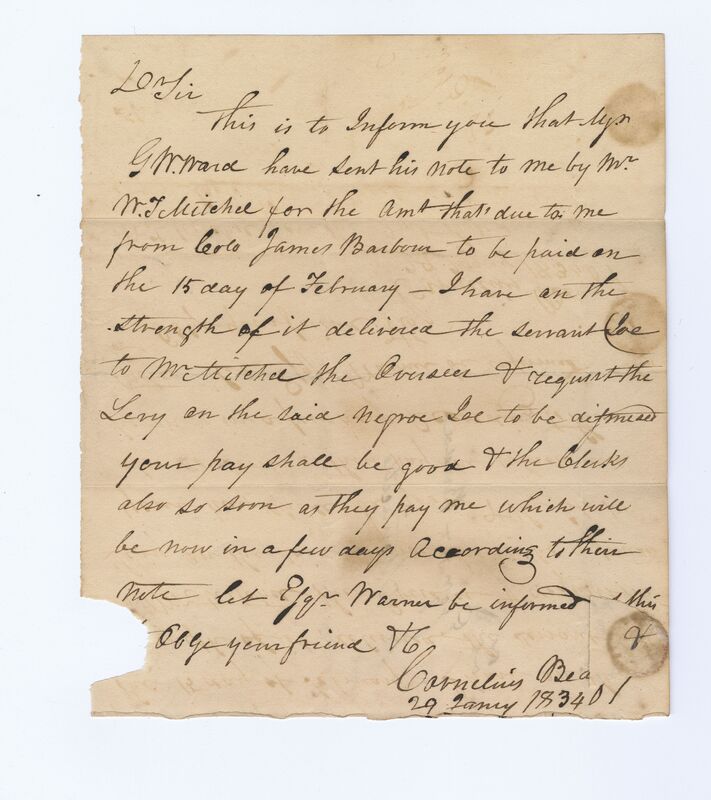 Dr Sir
This is to Inform you that Mr
G W. Ward have sent his note to me by Mr
W. T Mitchel for the Amt that's due to me
from Colo James Barbour to be paid on
the 15 day of February – I have on the
strength of it delivered the servant Joe
to Mr Mitchel the Overseer & request the
Levy on the said negroe Joe to be dismised
your pay shall be good & the Clerks
also so soon as they pay me which will
be now in a few days According to their
note let Esqr Warner be informed this
& Obge your friend &C
Cornelius Bea
29 Jany 1834